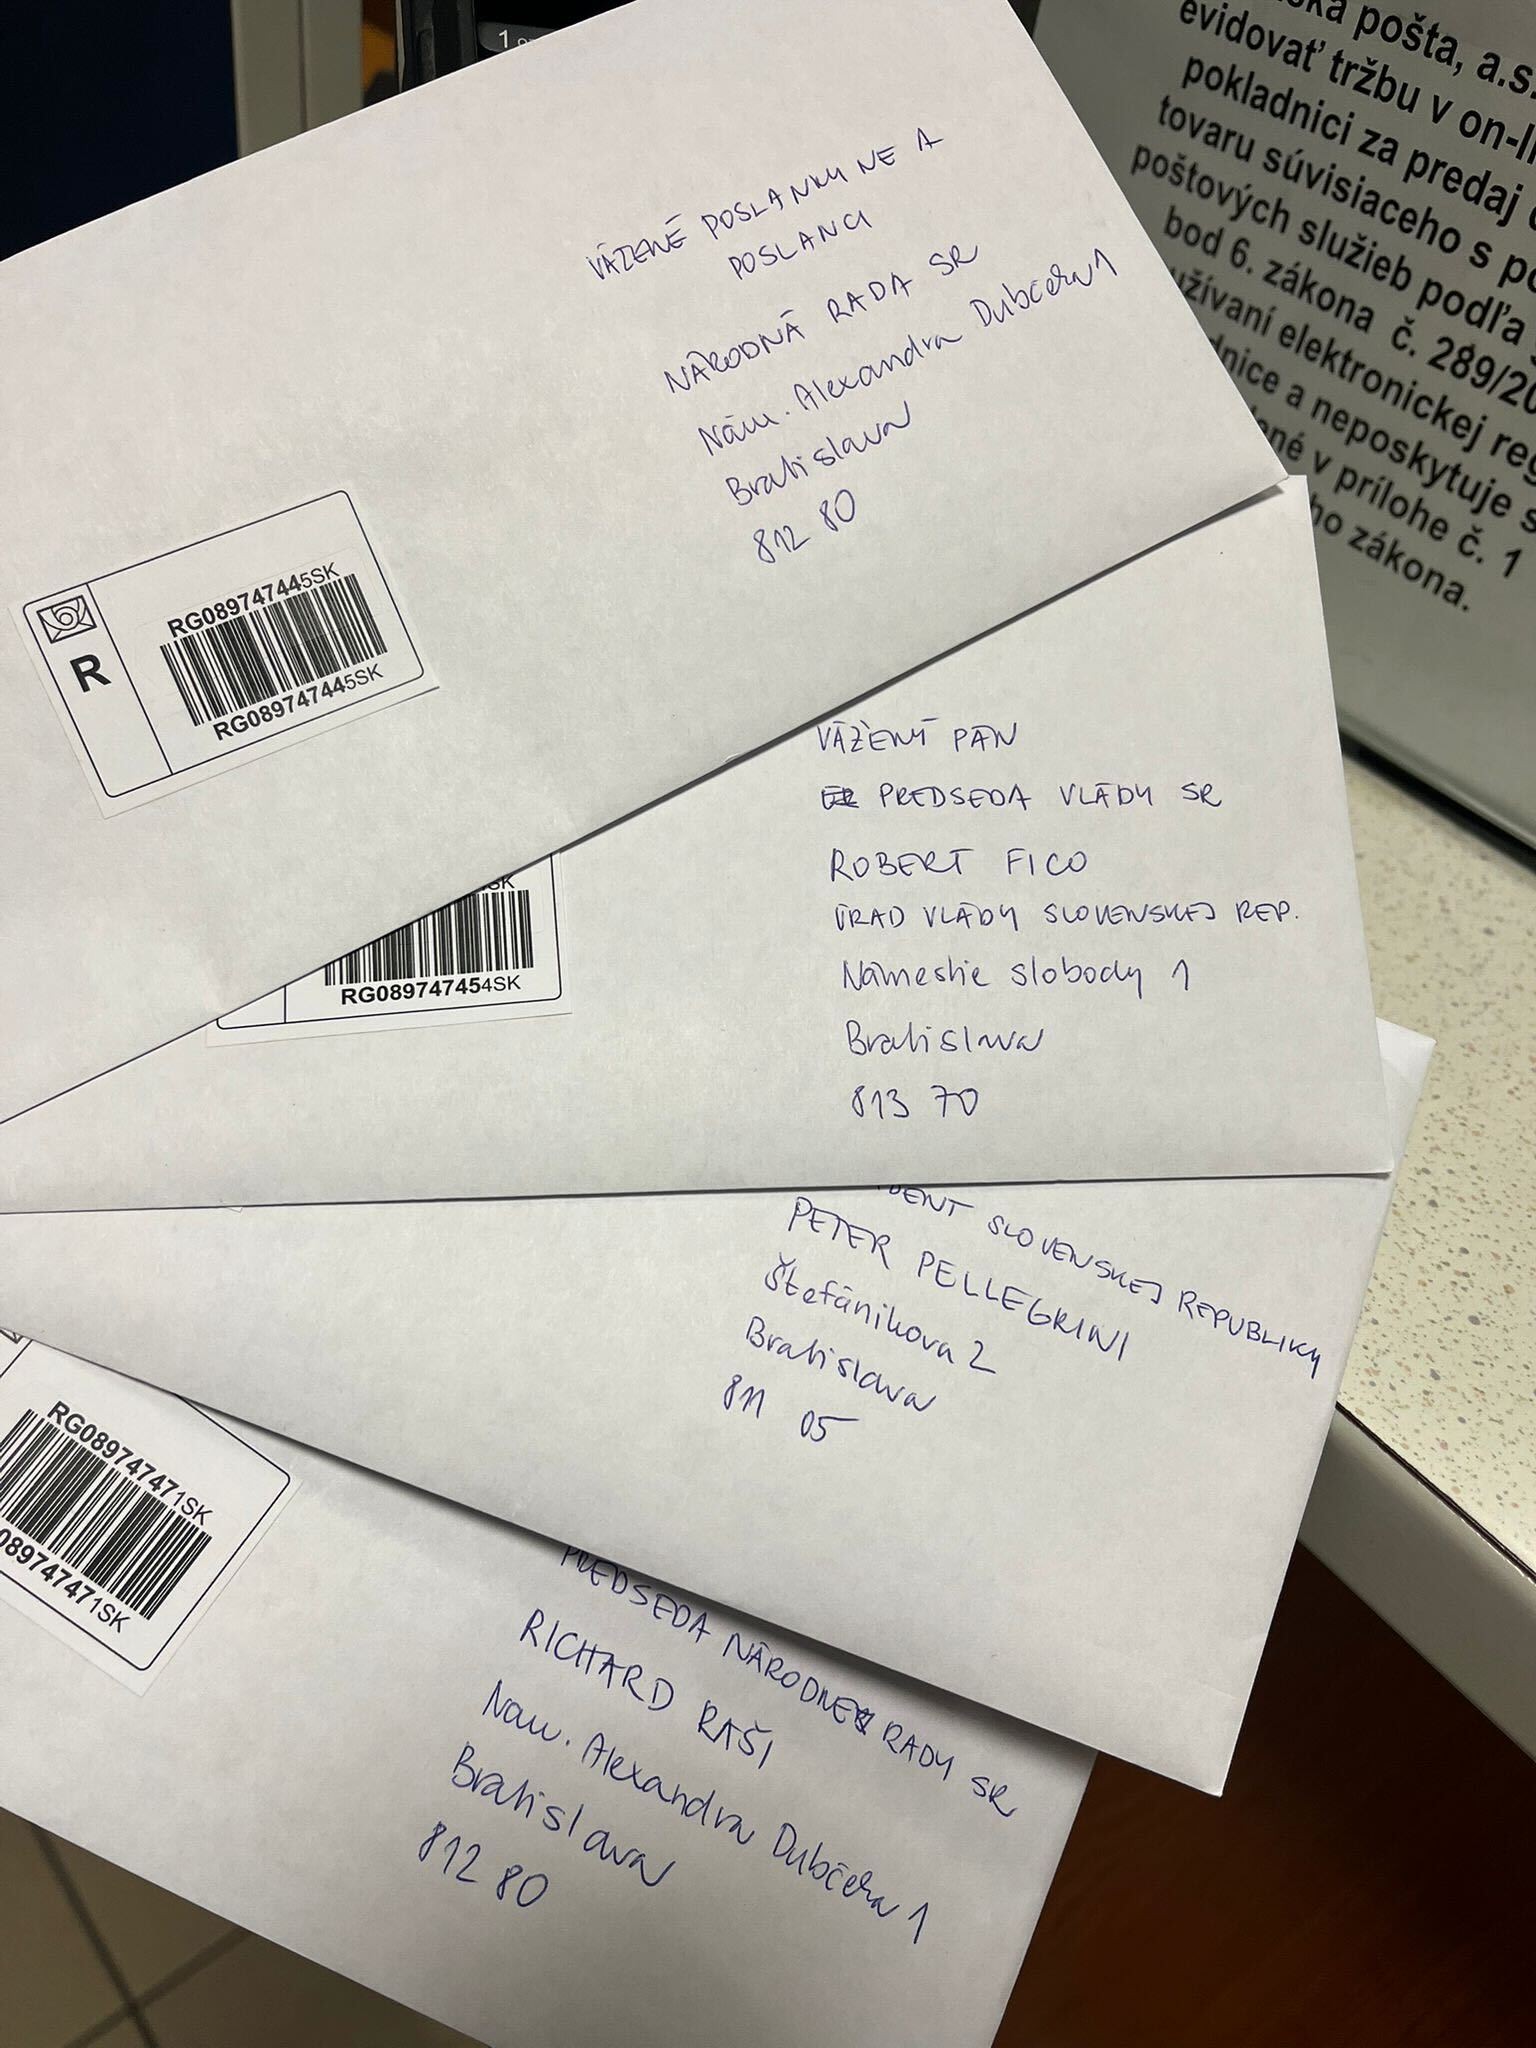 1
pošta, a.s.
evidovať tržbu v on-li
pokladnici za predaj
tovaru súvisiaceho s po
poštových služieb podľa
bod 6. zákona č. 289/20
užívaní elektronickej reg
dnice a neposkytuje s
v prílohe č. 1
ho zákona.
VÁŽENÉ POSLANKYNE A
POSLANCI
NÁRODNÁ RADA SR
Nám. Alexandra Dubčeka 1
Bratislava
812 80
R
RG089747445SK
RG089747445SK
VÁŽENÝ PÁN
PREDSEDA VLÁDY SR
ROBERT FICO
ÚRAD VLÁDY SLOVENSKEJ REP.
Námestie slobody 1
Bratislava
813 70
SK
RG089747454SK
DENT SLOVENSKEJ REPUBLIKY
PETER PELLEGRINI
Štefánikova 2
Bratislava
811 05
RG089747471SK
089747471SK
PREDSEDA NÁRODNEJ RADY SR
RICHARD RAŠI
Nám. Alexandra Dubčeka 1
Bratislava
812 80